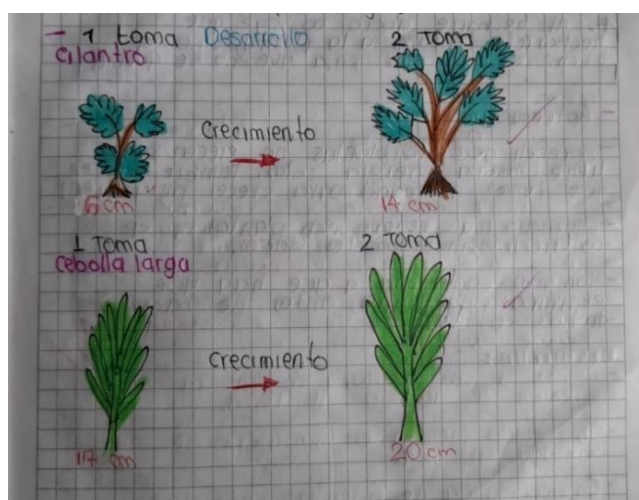 - 1 toma Desarrollo 2 Toma
cilantro
Crecimiento
6 cm 14 cm
1 Toma 2 Toma
cebolla larga
crecimiento
17 cm 20 cm